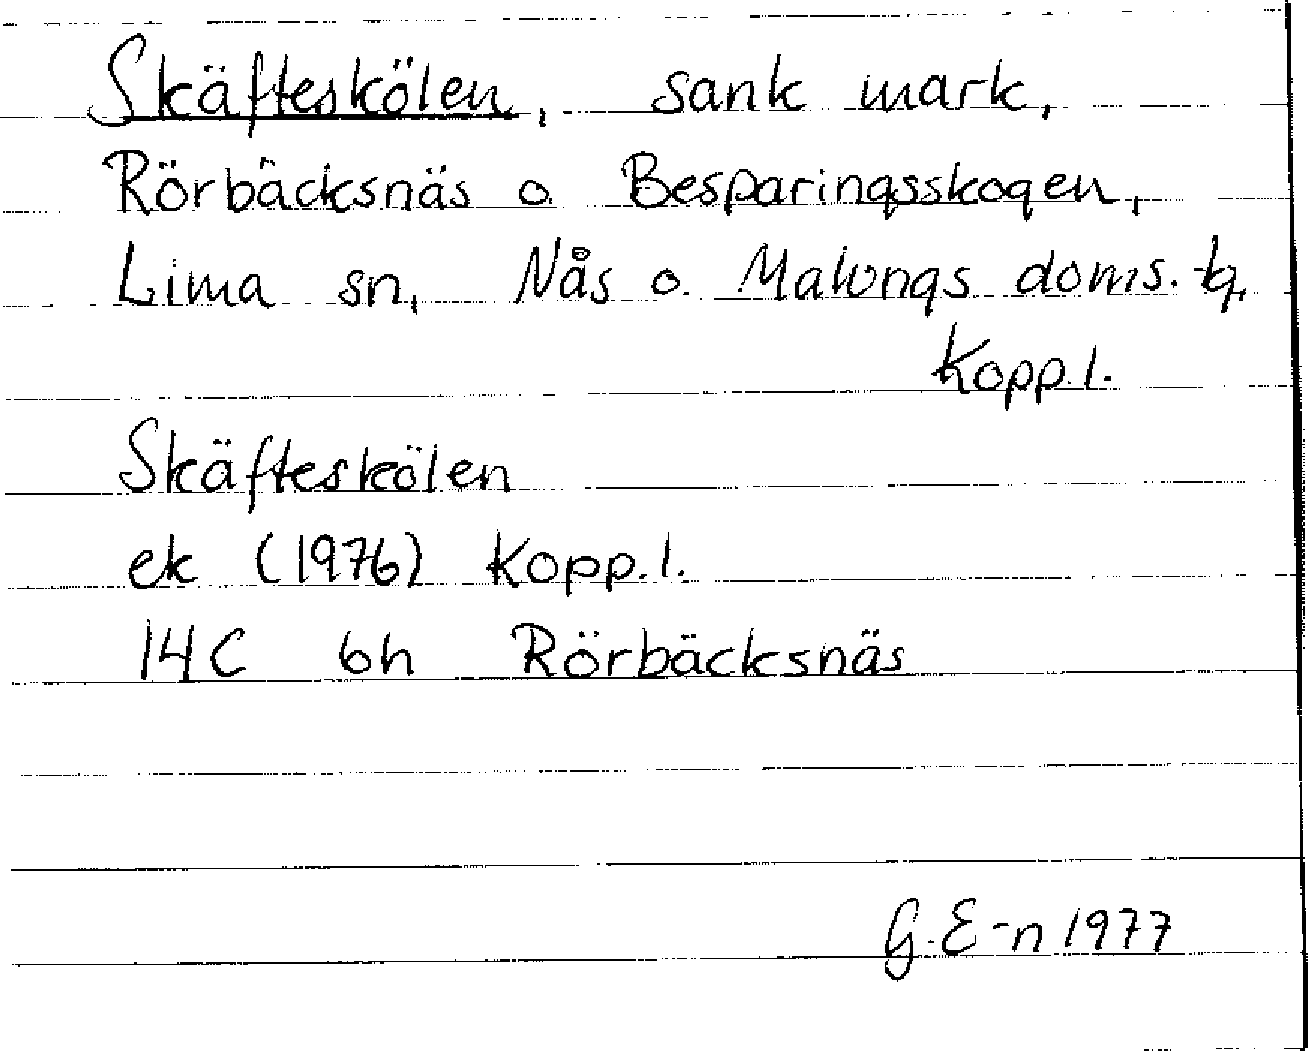 Skäfteskölen, sank mark,
Rörbäcksnäs o. Besparingsskogen,
Lima sn, Nås o. Malungs doms. tg,
Kopp.l.
Skäfteskölen
ek (1976) Kopp.l.
14C 6h Rörbäcksnäs
G. E-n 1977